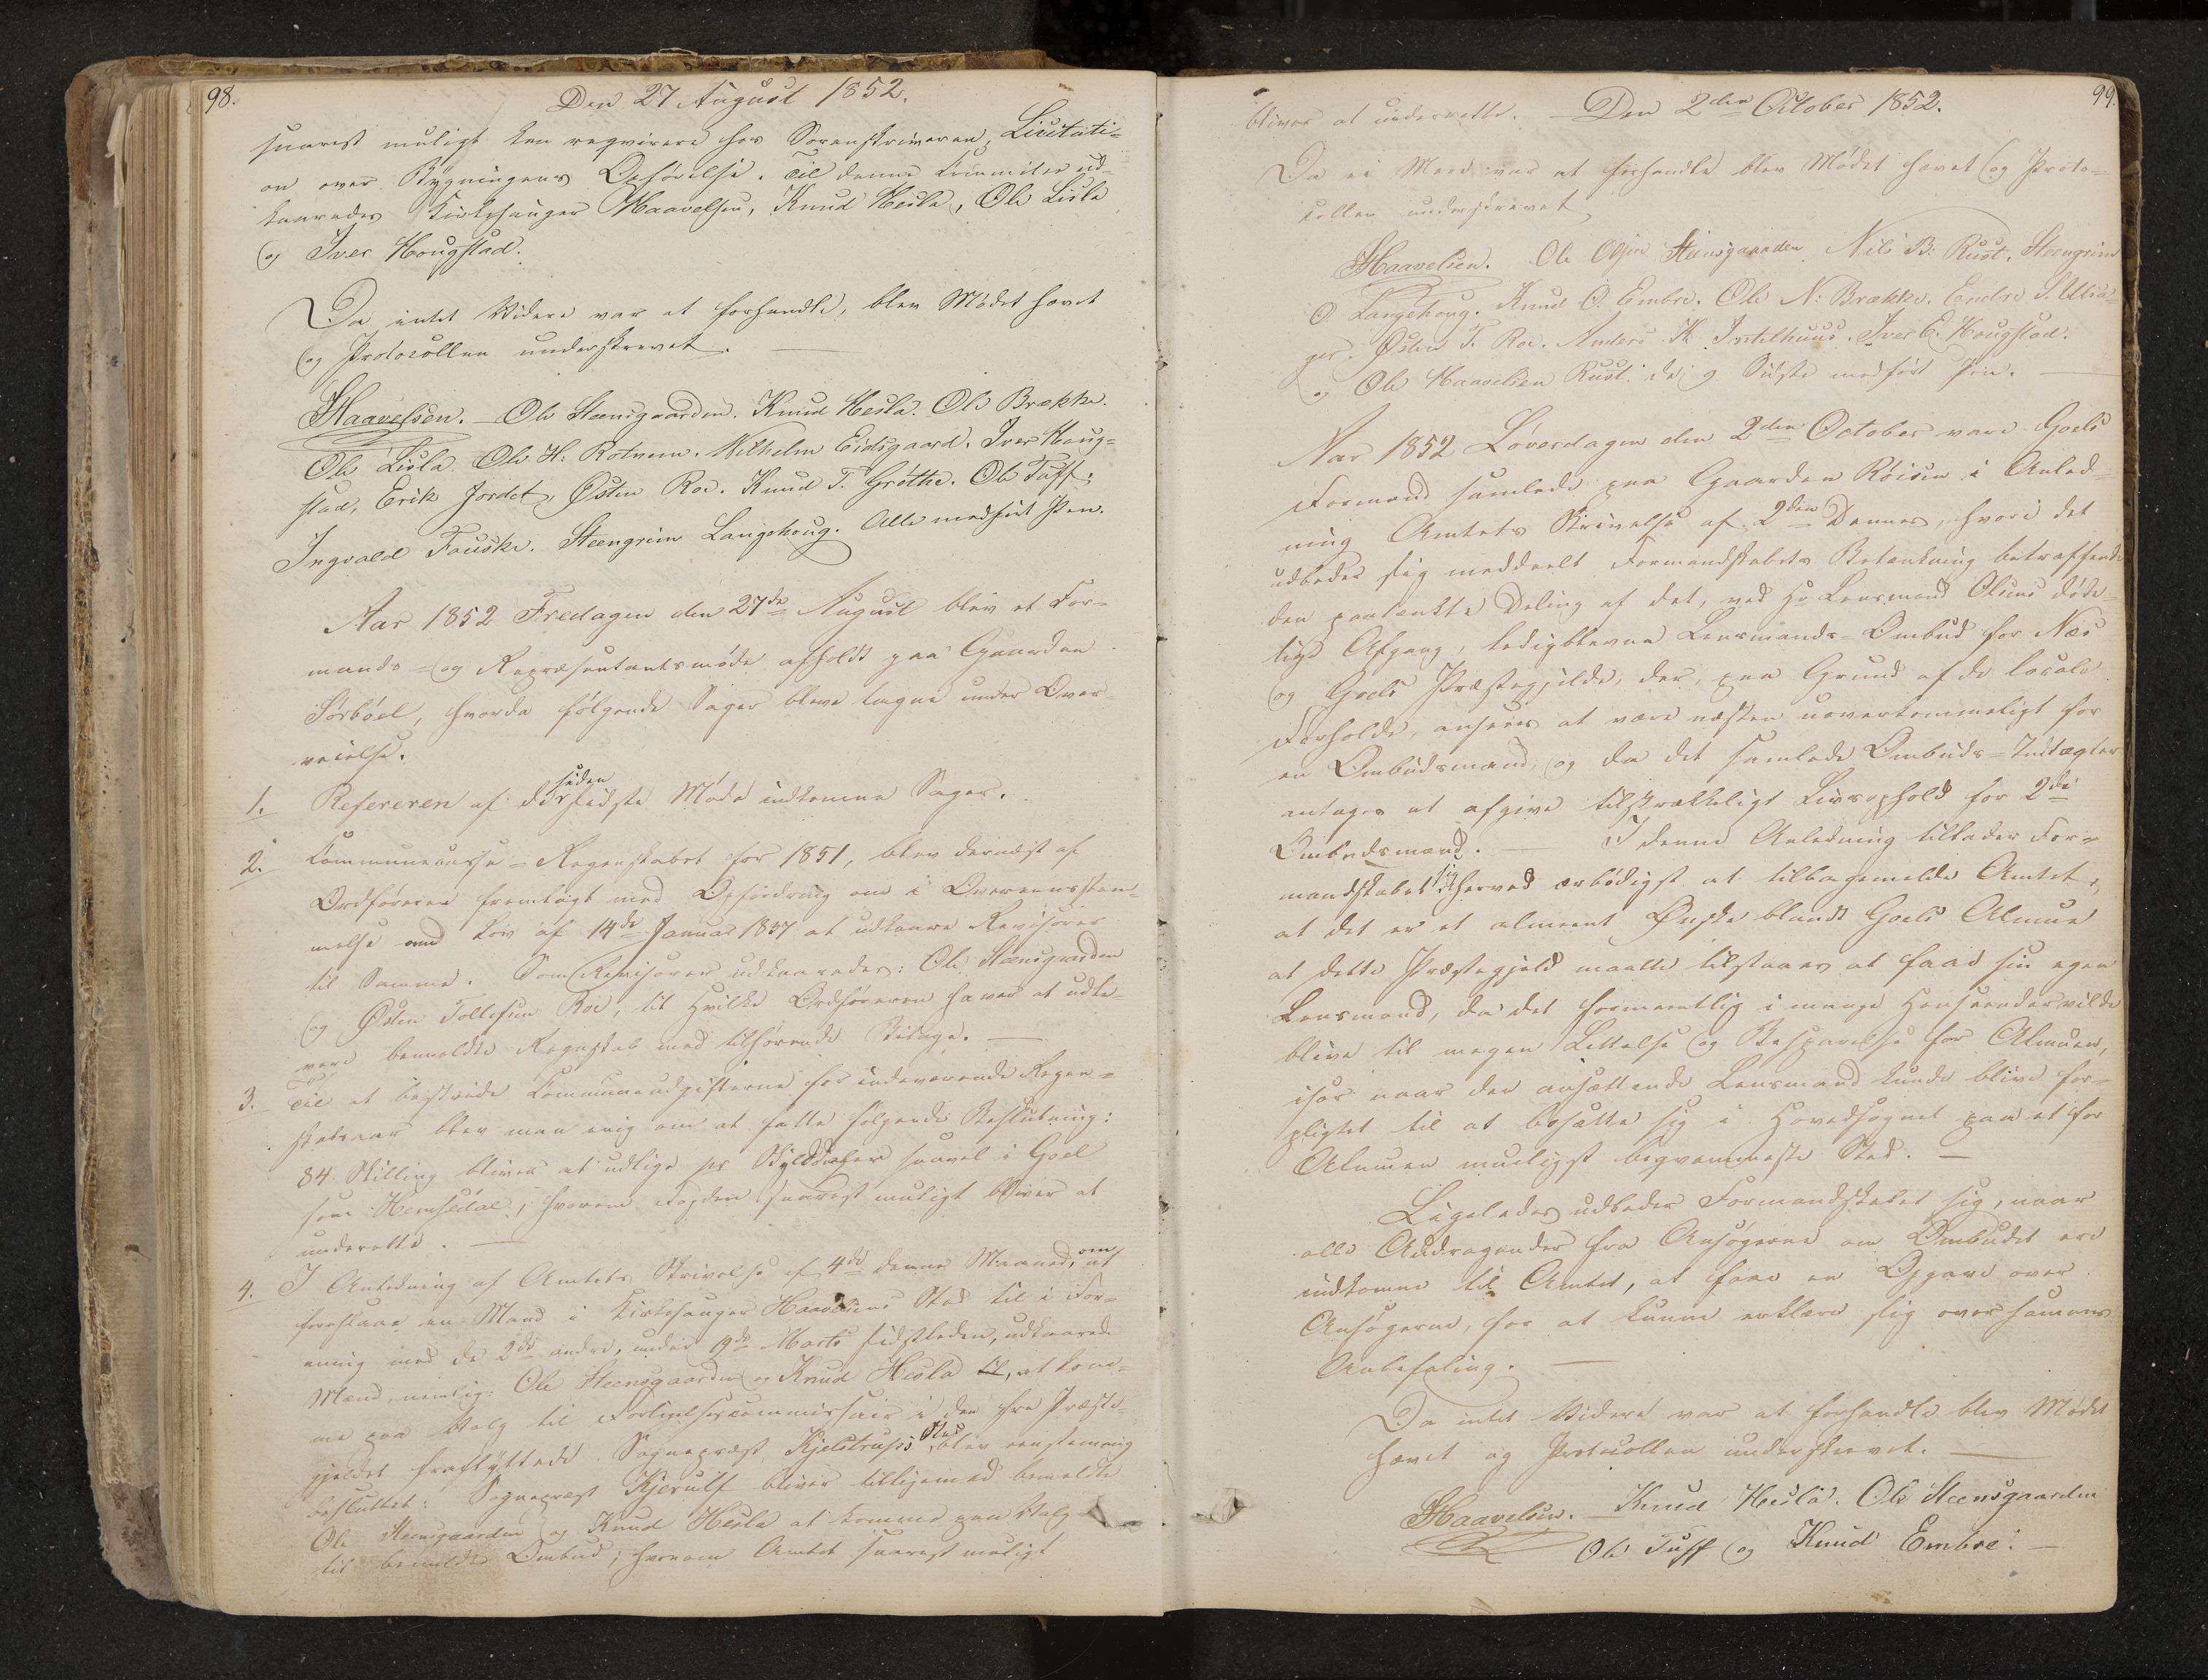 98.
Den 27 August 1852.
snarest muligt kan reqvirere hos Sorenskriveren, Licitati-
on over Bygningens Opførelse. Til denne Committee ud-
kaaredes Kirkesanger Haavelsen, Knud Hesla, Ole Lisla
og Iver Hougstad.
Da intet Videre var at forhandle, blev Mødet hævet
og Protocollen underskrevet.
Haavelsen. Ole Steensgaarden. Knud Hesla. Ole Brække.
Ole Lisla. Ole H. Rotnem. Wilhelm Eidsgaard. Iver Houg-
stad, Erik Jordet, Østen Roe. Knud T. Grøthe. Ole Tuff,
Ingvald Fauske. Steengrim Langehoug. Alle med ført Pen.
Aar 1852 Fredagen den 27de August blev et For-
mands- og Repræsentantsmøde afholdt paa Gaarden
Sørbøel, hvorda følgende Sager bleve tagne under Over-
veielse.
1. Refereren af de siden sidste Møde indkomne Sager.
2. Communecasse-Regnskabet for 1851, blev dernæst af
Ordføreren fremlagt med Opfordring om i Overeensstem-
melse med Lov af 14de Januar 1837 at udkaare Revisorer
til Samme. Som Revisorer udkaaredes: Ole Steensgaarden
og Østen Tollefsen Roe, til hvilke Ordføreren haver at udle-
vere bemeldte Regnskab med tilhørende Bilage.
3. Til at bestride Communeudgifterne for indeværende Regn-
skabsaar blev man enig om at fatte følgende Beslutning:
84 Skilling bliver at udligne pr Skylddaler saavel i Goel
som Hemsedal, hvorom Fogden snarest muligt bliver at
underrette.
4. I Anledning af Amtets Skrivelse af 4de denne Maaned, om at
foreslaae en Mand i Kirkesanger Haavelsens Sted til i For-
ening med de 2de andre, under 9de Marts sidstleden, udkaarede
Mænd, nemlig: Ole Steensgaarden og Knud Hesla til, at kom-
me paa Valg til Forligelsescommissair i den fra Præste-
gjeldet fraflyttede Sognepræst Kjelstrups Sted blev eenstemmig
besluttet: Sognepræst Kjerulf bliver tilligemed bemeldte
Ole Steensgaarden og Knud Hesla at komme paa Valg
til bemeldte Ombud; hvorom Amtet snarest muligt
99.
bliver at underrette. Den 2den October 1852.
Da ei Meer var at forhandle blev Mødet hævet og Proto-
collen underskrevet
Haavelsen. Ole Olsen Steensgaarden. Nils B. Rust. Steengrim
O. Langehoug. Knud O. Embre. Ole N. Brække. Endre S. Ulsa-
ger. Østen T. Roe. Anders K. Instelhuus. Iver E. Hougstad.
og Ole Haavelsen Rust. de 9 Sidste med ført Pen.
Aar 1852 Løverdagen den 2den October vare Goels
Formænd samlede paa Gaarden Røisen i Anled-
ning Amtets Skrivelse af 2den Dennes, hvori det
udbeder sig meddeelt Formandskabets Betænkning betræffende
den paatænkte Deling af det, ved Hr Lensmand Olsens døde-
lige Afgang, ledigblevne Lensmands-Ombud for Næs
og Goels Præstegjelde, der, paa Grund af de locale
Forholde, ansees at være næsten uoverkommeligt for
en Ombudsmand, og da det samlede Ombuds-Indtægter
antages at afgive tilstrækkeligt Livsophold for 2de
Ombudsmænd. I denne Anledning tillader For-
mandskabet sig herved ærbødigst at tilbagemelde Amtet,
at det er et almeent Ønske blandt Goels Almue
at dette Præstegjeld maatte tilstaaes at faae sin egen
Lensmand, da det formeentlig i mange Henseender vilde
blive til megen Lettelse og Besparelse for Almuen,
især naar den ansættende Lensmand kunde blive for-
pligtet til at bosætte sig i Hovedsognet paa et for
Almuen mueligst beqvemmeste Sted.
Ligeledes udbeder Formandskabet sig, naar
alle Andragender fra Ansøgerne om Ombudet ere
indkomne til Amtet, at faae en Opgave over
Ansøgerne, for at kunne erklære sig over sammes
Anbefaling.
Da intet Videre var at forhandle blev Mødet
hævet og Protocollen underskrevet.
Haavelsen. Knud Hesla. Ole Steensgaarden
Ole Tuff og Knud Embre.